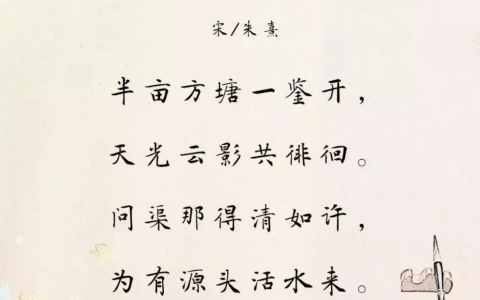 宋/朱熹
半亩方塘一鉴开，
天光云影共徘徊。
问渠那得清如许，
为有源头活水来。